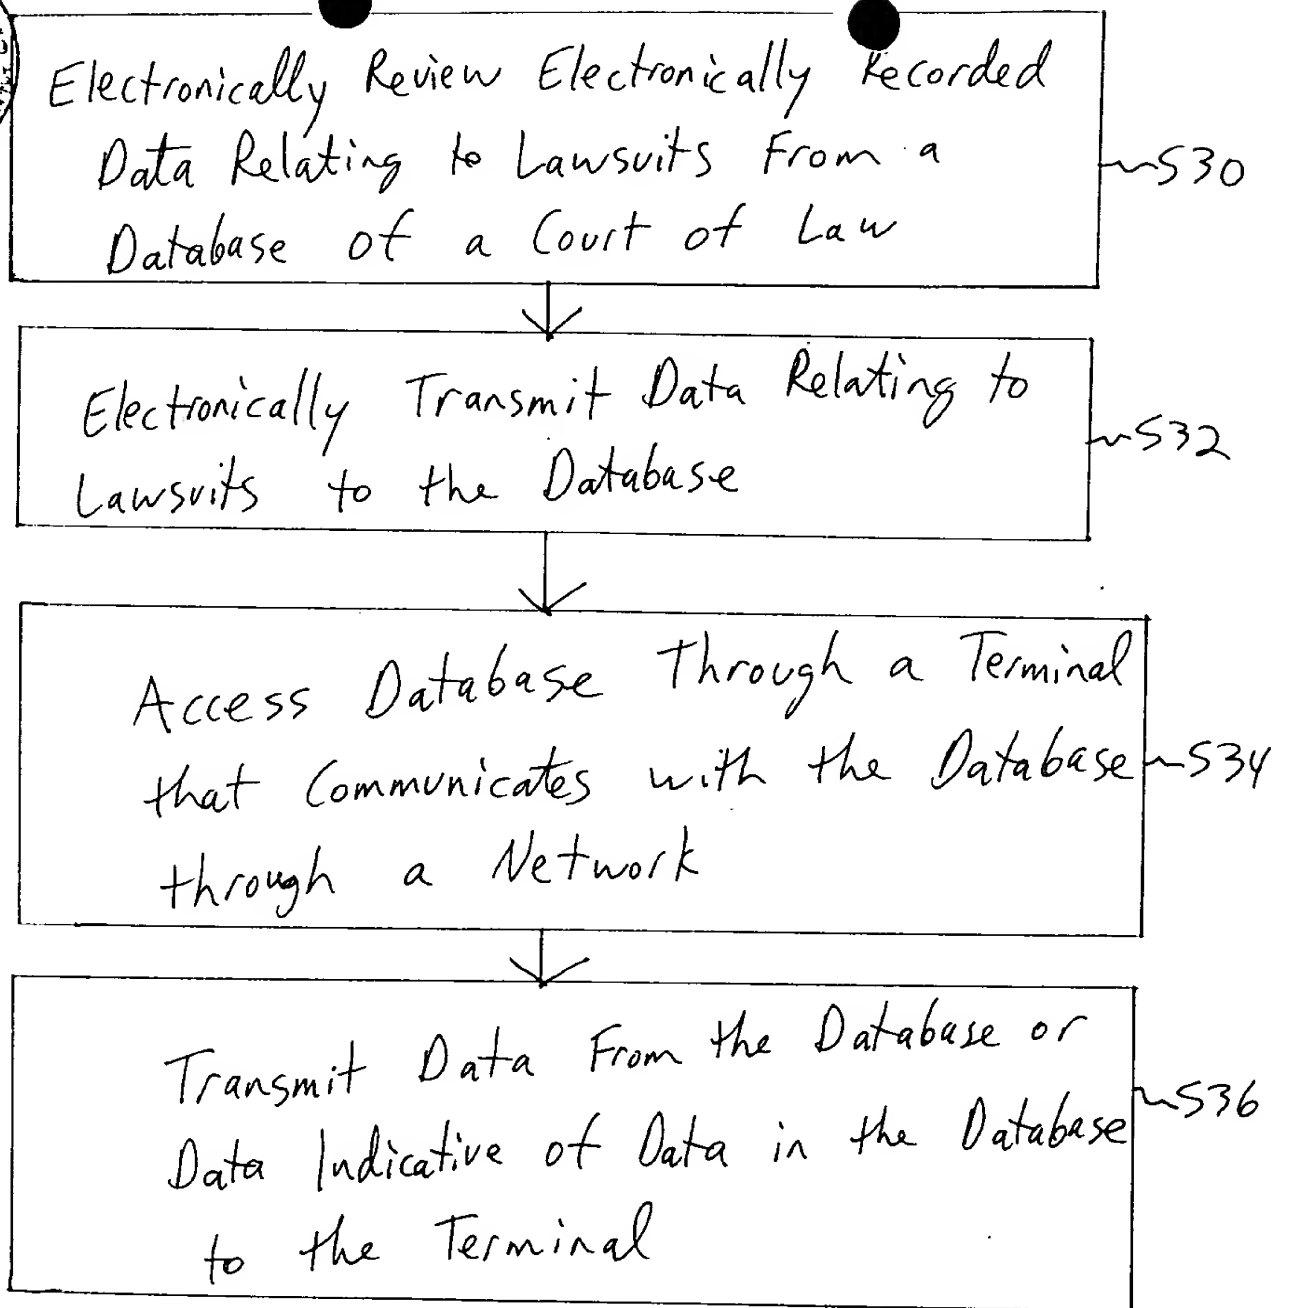 Electronically Review Electronically Recorded
Data Relating to Lawsuits From a
Database of a Court of Law
S30
Electronically Transmit Data Relating to
Lawsuits to the Database
S32
Access Database Through a Terminal
that Communicates with the Database
through a Network
S34
Transmit Data From the Database or
Data Indicative of Data in the Database
to the Terminal
S36